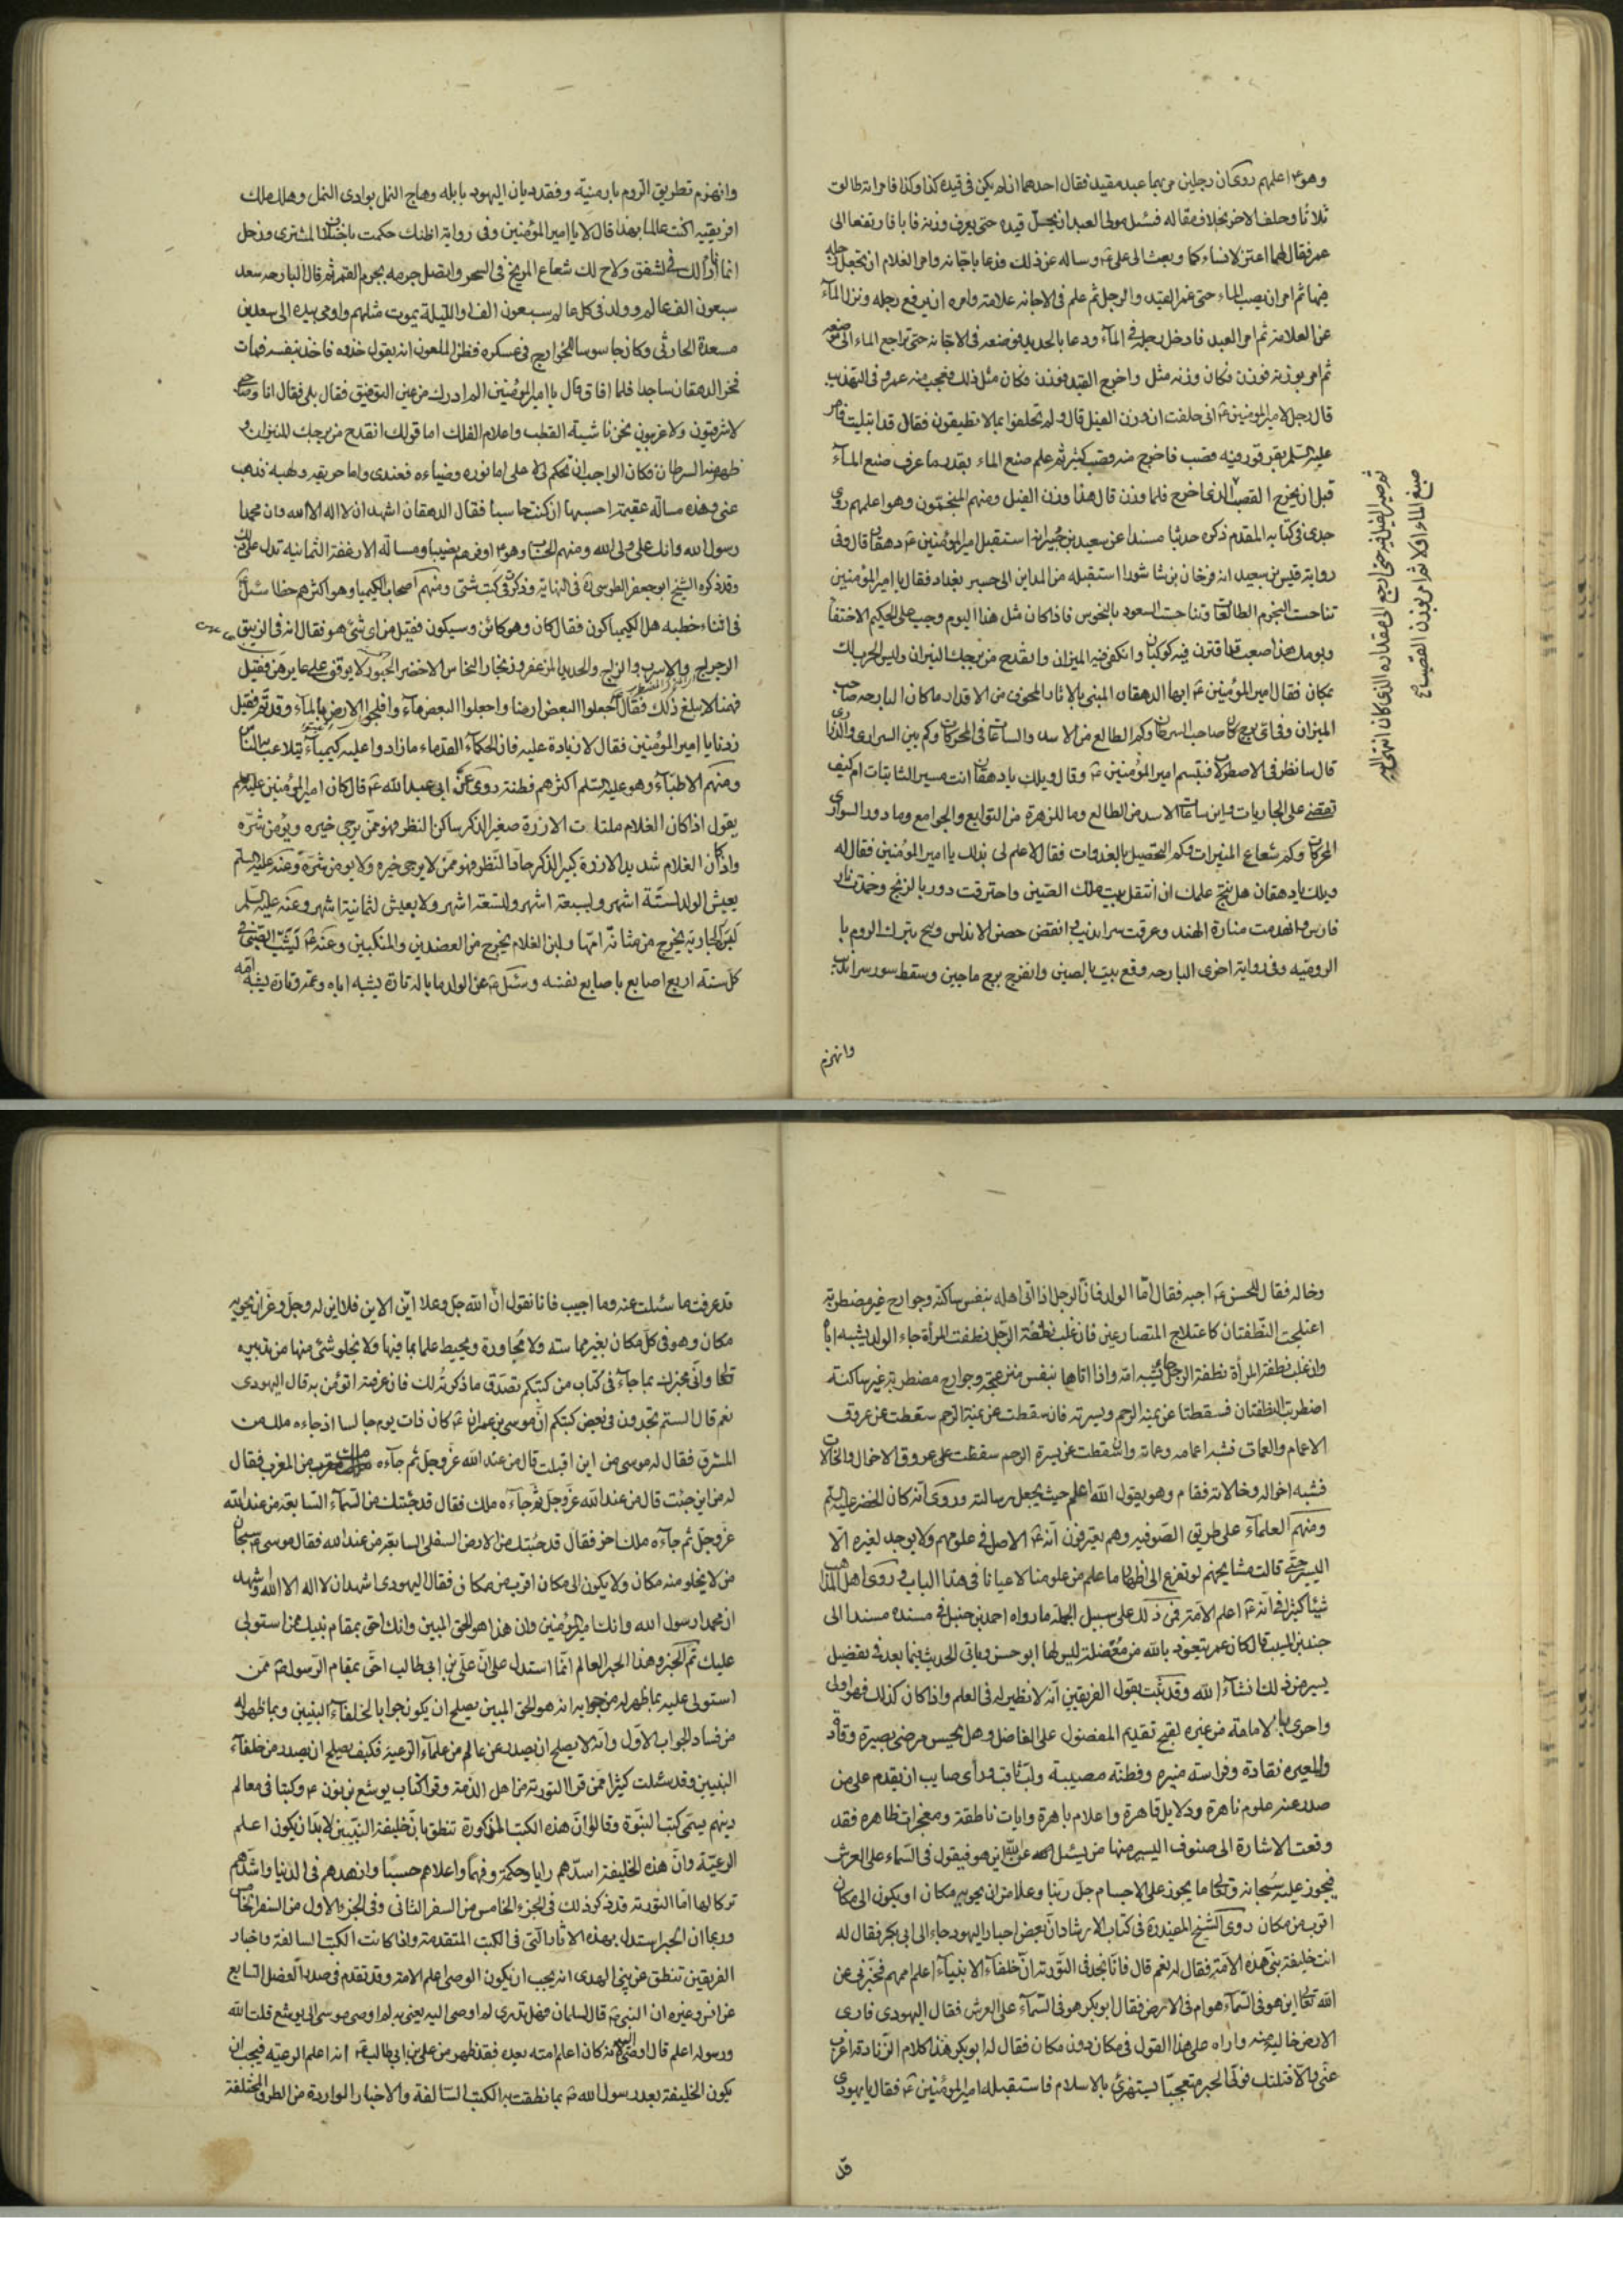 وهو ع اعلمهم روى ان رجلين مر بهما عبد مقيد فقال احدهما ان لم يكن في قيده كذا وكذا فامراته طالق
ثلاثا وحلف الاخر بخلاف مقاله فسئل مولى العبد ان يحل قيده حتى يعرف وزنه فابا فارتفعا الى
عمر فقال لهما اعتزلا نساءكما وبعث الى على ع وساله عن ذلك فدعا باجانه وامر الغلام ان يجعل رجله
فيها ثم امر ان يصب الماء حتى غمر القيد والرجل ثم علم في الاجانه علامة وامره ان يرفع رجله ونزل الماء
عن العلامة ثم امر العبد فادخل رجله في الماء ودعا بالحديد فوضعه في الاجانه حتى تراجع الماء الى موضعه
ثم امر بوزنه فوزن فكان وزنه مثل واخرج القيد فوزن فكان مثل ذلك فعجب منه عمر وفي التهذيب
قال رجل لامير المومنين ع انى حلفت ان وزن الفيل قال ولم تحلفوا بما لا تطيقون فقال قد ابتليت فامر
عليه السلم بقرقور فيه قصب فاخرج منه قصب كثير ثم علم صبغ الماء بقدر ما عرف صبغ الماء
قبل ان يخرج القصب الذى اخرج فلما وزن قال هذا وزن الفيل ومنهم المنجمون وهو اعلمهم روى
جدى في كتابه المقدم ذكره حديثا مسندا عن سعيد بن جبير انه استقبل امير المومنين ع دهقان قال وفي
رواية قيس بن سعيد انه مرخان بن شاشوا استقبله من المداين الى جسر بغداد فقال يا امير المؤمنين
تناحست النجوم الطالعات وتناحست السعود بالنحوس فاذا كان مثل هذا اليوم وجب على الحكيم الاختفا
ويومك هذا صعب قد اقترن فيه كوكبان وانكفى فيه الميزان وانقدح من برجك النيران وليس الحرب لك
بمكان فقال امير المؤمنين ع ايها الدهقان المنبى بالاثار المخوف من الاقدار ما كان البارحه صاحب
الميزان وفي اى برج كان صاحب السرطان وكم الطالع من الاسد والساعات في المحركات وكم بين السرارى والذرارى
قال سانظر في الاصطرلاب فتبسم امير المؤمنين ع وقال ويلك يا دهقان انت مسير الثابتات ام كيف
تقضى على الجاريات واين ساعات الاسد من الطالع وما للزهرة من التوابع والجوامع وما دور السرارى
المحركات وكم شعاع المنيرات وكم التحصيل بالغدوات فقال لا علم لى بذلك يا امير المومنين فقال له
ويلك يا دهقان هل نتج علمك ان انتقل بيت ملك الصين واحترقت دور بالزنج وخمدت نار
فارس وانهدمت منارة الهند وغرقت سرانديب وانقض حصن الاندلس ونتج بترك الروم با
الروميه وفي رواية اخرى البارحه وقع بيت بالصين وانفرج برج ماجين وسقط سور سرانديب
وانهزم
ثم صير الفيل فيه حتى رجع الى مقداره الذى كان انتهى اليه
صبغ الماء اولا ثم امر بوزن القصب صح
وانهزم بطريق الروم بارمنية وفقد ديان اليهود بايله وهاج النمل بوادى النمل وهلك ملك
افريقيه اكنت عالما بهذا قال لا يا امير المؤمنين وفي رواية اظنك حكمت باختلاف المشترى وزحل
انما انارا لك في الشفق ولاح لك شعاع المريخ في السحر واتصل جرمه بجرم القمر ثم قال البارحه سعد
سبعون الف عالم وولد في كل عالم سبعون الفا والليلة يموت مثلهم واومى بيده الى سعد بن
مسعدة الحارثى وكان جاسوسا للخوارج في عسكره فظن الملعون انه يقول خذوه فاخذ بنفسه فمات
فخر الدهقان ساجدا فلما افاق قال يا امير المومنين الم ادرك من عين التوفيق فقال بلى فقال انا وصاحبى
لا شرقيون ولا غربيون نحن ناشية القطب واعلام الفلك اما قولك انقدح من برجك النيران و
ظهر منه السرطان فكان الواجب ان تحكم لى لا على اما نوره وضياءه فعندى واما حريقه ولهبه فذهب
عنى وهذه مسالة عقيمة احسبها ان كنت حاسبا فقال الدهقان اشهد ان لا اله الا الله وان محمدا
رسول الله وانك على ولى الله ومنهم الحساب وهو ع اوفرهم نصيبا ومسالة الارغفة الثمانيه تدل على ذلك
وقد ذكره الشيخ ابو جعفر الطوسى ره في النهاية وذكرت في كتب شتى ومنهم اصحاب الكيميا وهو اكثرهم حظا سئل ع
في اثناء خطبه هل الكيميا كون فقال كان وهو كائن وسيكون فقيل من اى شئ هو فقال انه في الزيبق
الرجراج والاسرب والزاج والحديد المزعفر وزنجار النحاس الاخضر الحبور لا يوقف على عابرهن فقيل
فهمنا لا يبلغ ذلك فقال اجعلوا البعض ارضا واجعلوا البعض ماء وافلحوا الارض بالماء وقد تم فقيل
زدنا يا امير المؤمنين فقال لا زيادة عليه فان الحكماء القدماء ما زادوا عليه كيما يتلاعب به الناس
ومنهم الاطباء وهو عليه السلم اكثرهم فطنة روى عن ابى عبد الله ع قال كان امير المؤمنين عليه السلم
يقول اذا كان الغلام ملتاث الازرة صغير الذكر ساكن النظر فهو ممن يرجى خيره ويؤمن شره
واذا كان الغلام شديد الازرة كبير الذكر حاد النظر فهو ممن لا يرجى خيره ولا يومن شره وعنه عليه السلم
يعيش الولد لستة اشهر ولسبعة اشهر ولتسعة اشهر ولا يعيش لثمانية اشهر وعنه عليه السلم
لبن الجارية يخرج من مثانة امها ولبن الغلام يخرج من العضدين والمنكبين وعنه ع يشب الصبى في
كل سنة اربع اصابع باصابع نفسه وسئل ع عن الولد ما باله تارة يشبه اباه وعمه وتارة يشبه امه
وخاله فقال للحسن ع اجبه فقال اما الولد فان الرجل اذا اتى اهله بنفس ساكنة وجوارح غير مضطربة
اعتلجت النطفتان كاعتلاج المتصارعين فان غلبت نطفة الرجل نطفة المرأة جاء الولد يشبه اباه
وان غلب نطفة المرأة نطفة الرجل جاء يشبه امه واذا اتاها بنفس منزعجة وجوارح مضطربة غير ساكنة
اضطربت النطفتان فسقطتا عن يمنة الرحم ويسرته فان سقطت عن يمنة الرحم سقطت عن عروق
الاعمام والعمات فشبه اعمامه وعماته وان سقطت عن يسرة الرحم سقطت على عروق الاخوال والخالات
فشبه اخواله وخالاته فقام وهو يقول الله اعلم حيث يجعل رسالته وروى انه كان الخضر عليه السلم
ومنهم العلماء على طريق الصوفيه وهم يعترفون انه ع الاصل في علومهم ولا يوجد لغيره الا
اليسير حتى قالت مشايخهم لو تفرغ الى اظهار ما علم من علومنا لاعيانا في هذا الباب وروى اهل المذاهب
شيئا كثيرا في انه ع اعلم الامة فمن ذلك على سبيل الجملة ما رواه احمد بن حنبل في مسنده مسندا الى
قال كان عمر يتعوذ بالله من معضلة ليس لها ابو حسن وياتى الحديث فيما بعد في تفضيل
يسير من ذلك انشاء الله وقد ثبت بقول الفريقين انه لا نظير له في العلم واذا كان كذلك فهو اولى
واحرى بالامامة من غيره لقبح تقديم المفضول على الفاضل وهل يحسن مرضى بصيرة وقادة
والمعيه نقادة وفراسة منيره وفطنة مصيبة ولب ثاقب وراى صايب ان يقدم على من
صدر عنه علوم ناهرة ودلايل قاهرة واعلام باهرة وايات ناطقة ومعجزات ظاهره فقد
وقعت الاشارة الى صنوف اليسير منها من يسئل عن الله اين هو فيقول في السماء على العرش
فيجوز عليه سبحانه وتعالى ما يجوز على الاجسام جل ربنا وعلا من ان يحويه مكان او يكون الى مكان
اقرب من مكان روى الشيخ المفيد ره في كتاب الارشاد ان بعض احبار اليهود جاء الى ابى بكر فقال له
انت خليفة نبى هذه الامة فقال له نعم قال فانا نجد في التورية ان خلفاء الانبياء اعلم اممهم فخبرنى عن
الله تعالى اين هو في السماء هو ام في الارض فقال ابو بكر هو في السماء على العرش فقال اليهودى فارى
الارض خالية منه واراه على هذا القول في مكان دون مكان فقال له ابو بكر هذا كلام الزنادقة اعزب
عنى والا قتلتك فولى الحبر متعجبا يستهزئ بالاسلام فاستقبله امير المؤمنين ع فقال يا يهودى
قد
قد عرفت ما سئلت عنه وما اجيب فانا نقول ان الله جل وعلا اين الاين فلا اين له وجل وعز ان يحويه
مكان وهو في كل مكان بغير مماسته ولا مجاورة ويحيط علما بما فيها ولا يخلو شئ منها من تدبيره
تعالى وانى مخبرك بما جاء في كتاب من كتبكم تصدق ما ذكرته لك فان عرفته اتؤمن به قال اليهودى
نعم قال الستم تجدون في بعض كتبكم ان موسى بن عمران ع كان ذات يوم جالسا اذ جاءه ملك من
المشرق فقال له موسى من اين اقبلت قال من عند الله عز وجل ثم جاءه ملك من المغرب فقال
له من اين جئت قال من عند الله عز وجل ثم جاءه ملك فقال قد جئتك من السماء السابعة من عند الله
عز وجل ثم جاءه ملك اخر فقال قد جئتك من الارض السفلى السابعة من عند الله فقال موسى ع سبحان
من لا يخلو منه مكان ولا يكون الى مكان اقرب من مكان فقال اليهودى اشهد ان لا اله الا الله واشهد
ان محمدا رسول الله وانك امير المؤمنين وان هذا هو الحق المبين وانك احق بمقام نبيك ممن استولى
عليك تم الخبر وهذا الحبر العالم انما استدل على ان على بن ابى طالب احق بمقام الرسول ص ممن
استولى عليه بما ظهر له من جوابه انه هو الحق المبين يصلح ان يكون جوابا لخلفاء النبيين وبما ظهر له
من فساد الجواب الاول وانه لا يصلح ان يصدر عن عالم من علماء الرعية فكيف يصلح ان يصدر من خلفاء
النبيين وقد سئلت كثيرا ممن قرا التورية من اهل الذمة وقرا كتاب يوشع بن نون ع وكتبا في معالم
دينهم يسمى كتب النبوة وقالوا ان هذه الكتب المذكورة تنطق بان خليفة النبيين لا بد ان يكون اعلم
الرعية وان هذه الخليفة اسدهم رايا وحكمة وفهما واعلاهم حسبا وازهدهم في الدنيا واشدهم
تركا لها اما التورية قد ذكر ذلك في الجزء الخامس من السفر الثانى وفي الجزء الاول من السفر الخامس
وربما ان الحبر استدل بهذه الاثار التى في الكتب المتقدمة واذا كانت الكتب السالفة واخبار
الفريقين تنطق عن نبى الهدى انه يجب ان يكون الوصى اعلم الامة وقد تقدم في صدر الفصل السابع
عن انس وغيره ان النبى ص قال لسلمان فهل تدرى لم اوصى اليه يعنى به لم اوصى موسى الى يوشع قلت الله
ورسوله اعلم قال اوصى اليه لانه كان اعلم امته بعده فقد ظهر من على بن ابى طالب ع انه اعلم الرعيه فيجب ان
يكون الخليفة بعد رسول الله ص بما نطقت به الكتب السالفة والاخبار الواردة من الطرق المختلفة